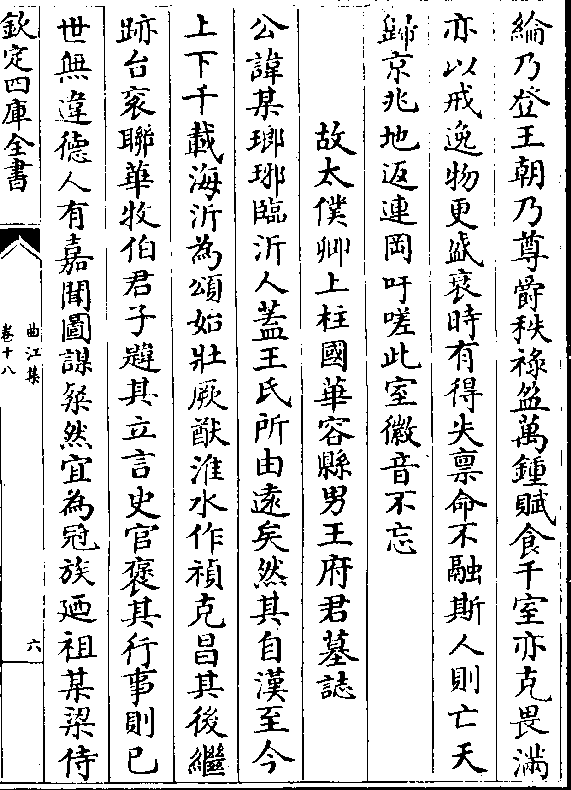 綸乃登王朝乃尊爵秩祿盈萬鍾賦食千室亦克畏滿
亦以戒逸物更盛衰時有得失禀命不融斯人則亡天
歸京兆地返連岡吁嗟此室徽音不忘
故太僕卿上柱國華容縣男王府君墓誌
公諱某瑯琊臨沂人蓋王氏所由遠矣然其自漢至今
上下千載海沂為頌始壯厥猷淮水作禎克昌其後繼
跡台衮聯華牧伯君子韙其立言史官褒其行事則已
世無違德人有嘉聞圖諜粲然宜為冠族廼祖某梁侍
欽定四庫全書
曲江集
卷十八
六